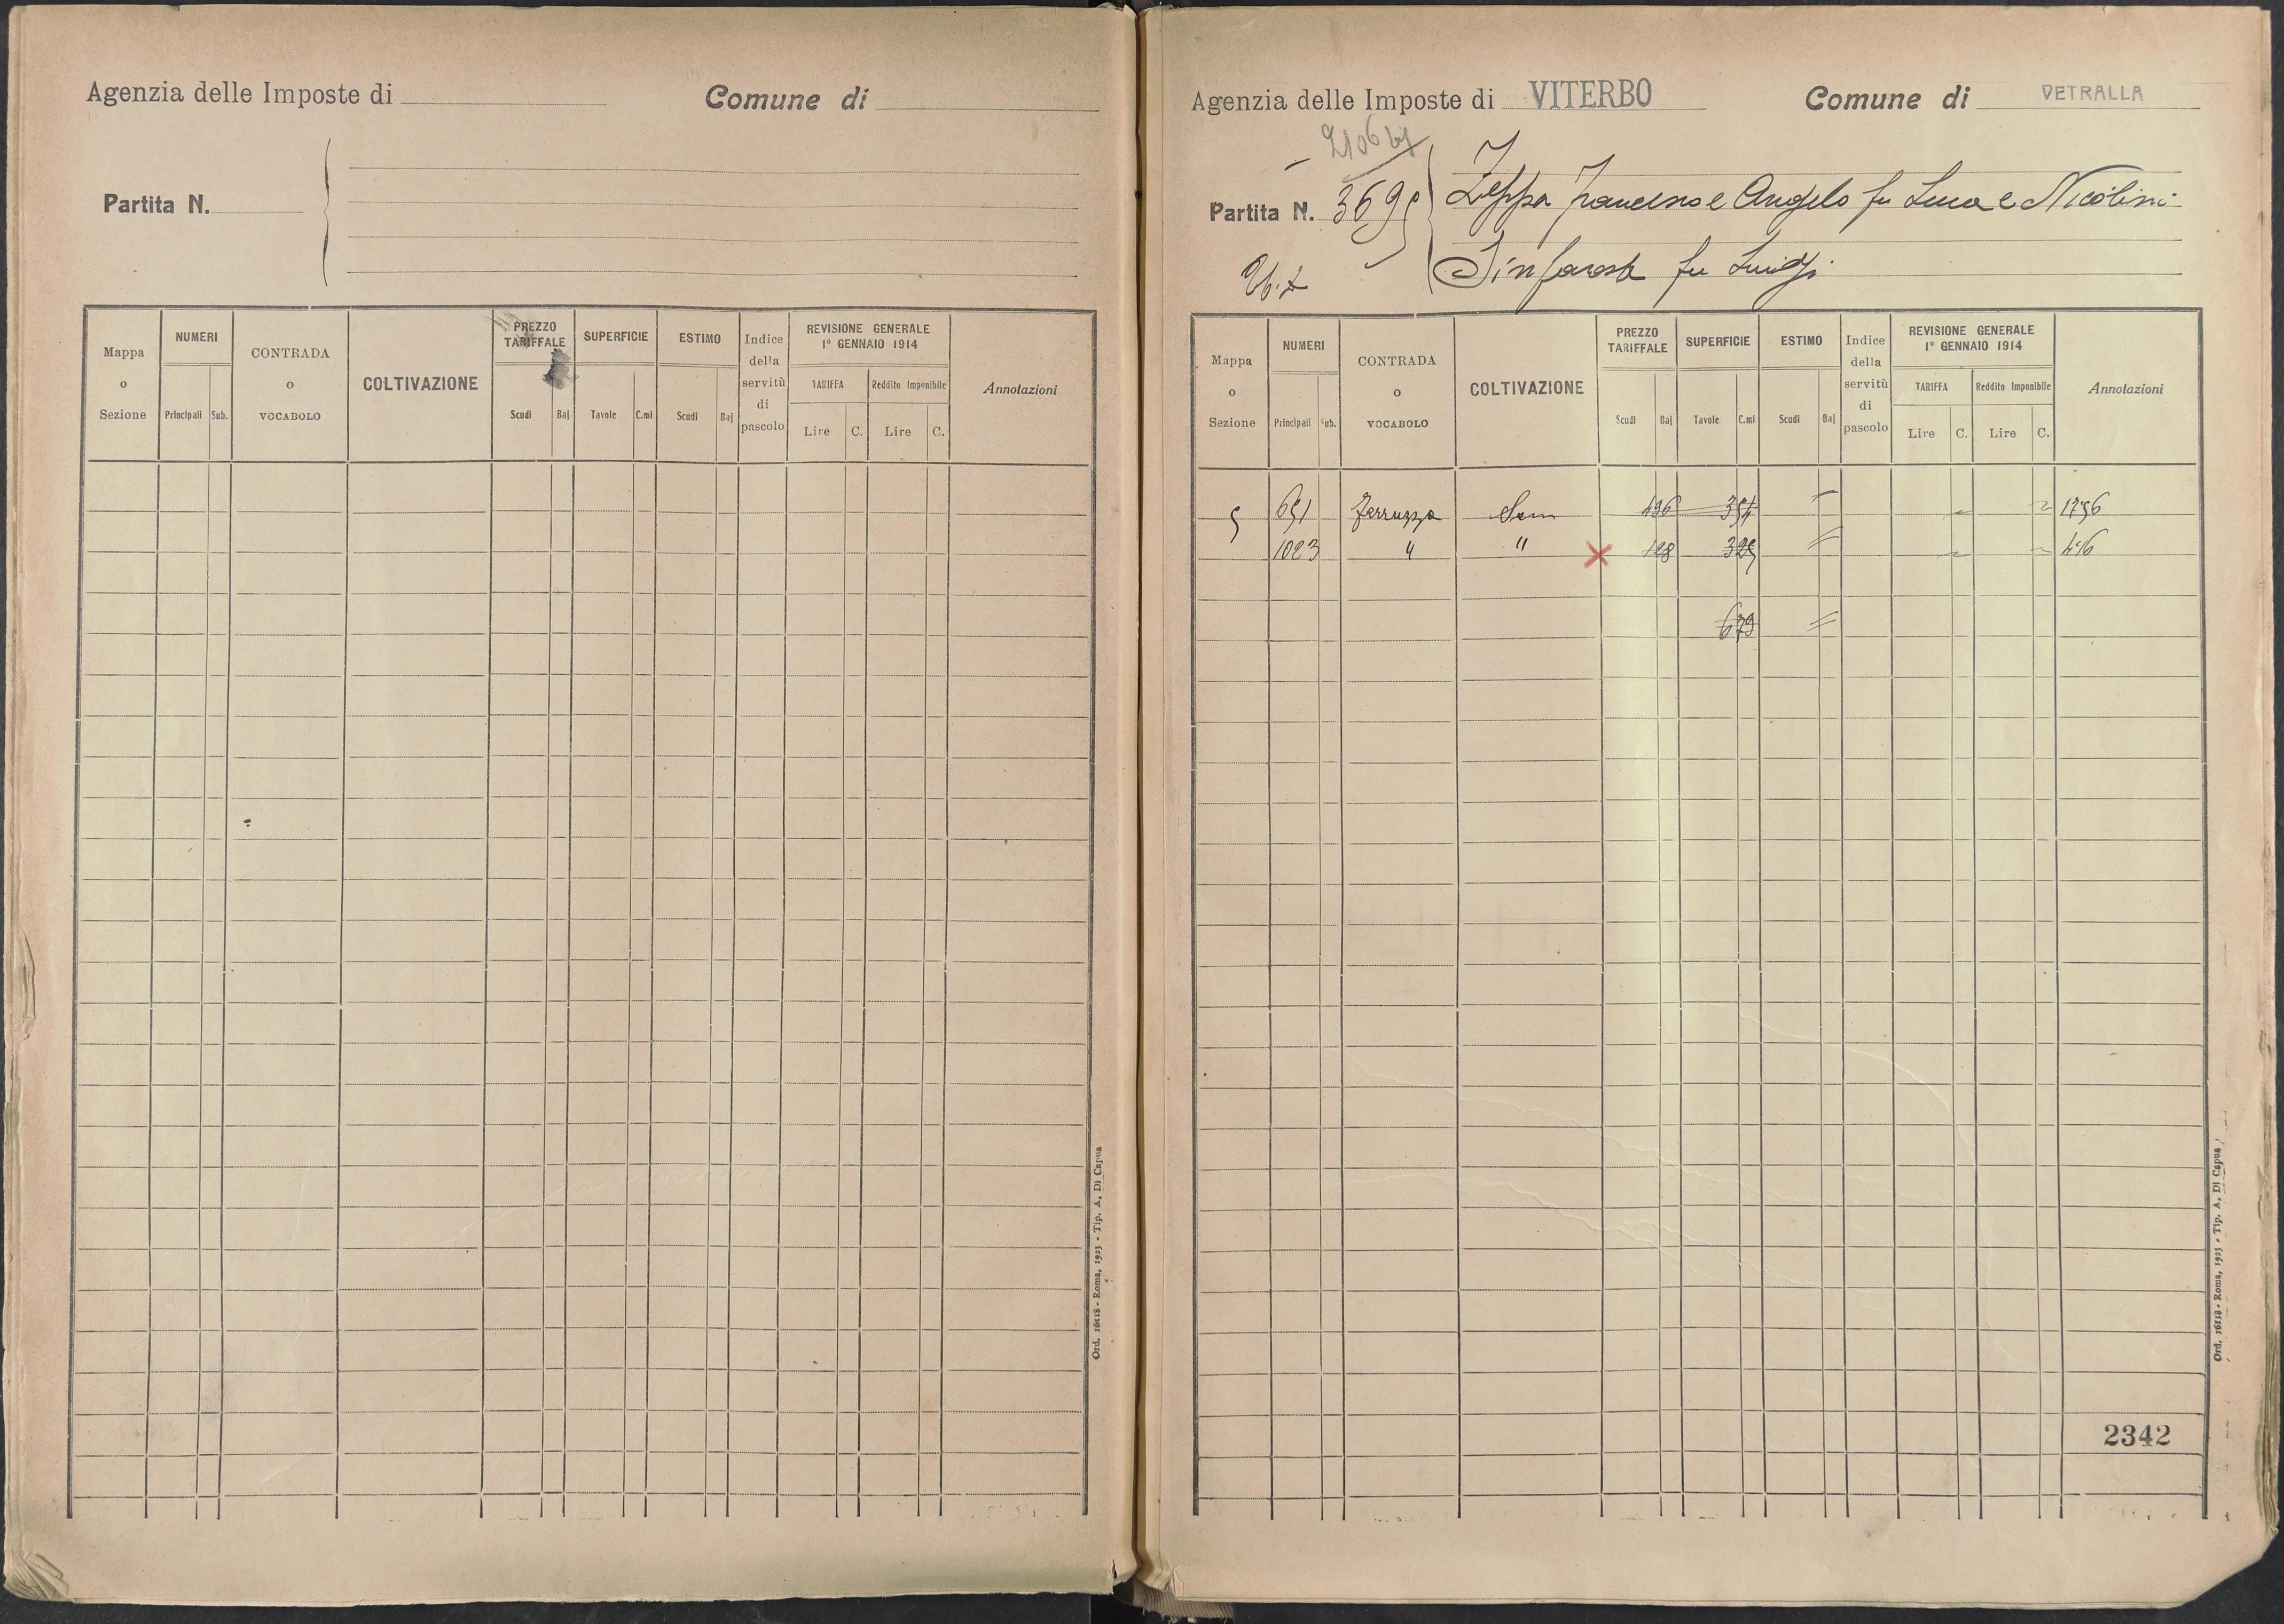 Agenzia delle Imposte di
Comune di
Partita N.
Mappa o Sezione
NUMERI
Principali Sub.
CONTRADA o VOCABOLO
COLTIVAZIONE
PREZZO TARIFFALE
Scudi Baj
SUPERFICIE
Tavole C.mi
ESTIMO
Scudi Baj
Indice della servitù di pascolo
REVISIONE GENERALE
1° GENNAIO 1914
TARIFFA Reddito Imponibile
Lire C. Lire C.
Annotazioni
Ord. 16118 - Roma, 1923 - Tip. A. Di Capua
Agenzia delle Imposte di VITERBO
Comune di VETRALLA
2106 bis
Partita N. 3695
Zeppa Francesco e Angelo fu Luca e Nicolini
Sinforosa fu Luigi
Mappa o Sezione
NUMERI
Principali Sub.
CONTRADA o VOCABOLO
COLTIVAZIONE
PREZZO TARIFFALE
Scudi Baj
SUPERFICIE
Tavole C.mi
ESTIMO
Scudi Baj
Indice della servitù di pascolo
REVISIONE GENERALE
1° GENNAIO 1914
TARIFFA Reddito Imponibile
Lire C. Lire C.
Annotazioni
5 651 Sem 496 354 1756
1023 " " 128 325 416
679
2342
Ord. 16118 - Roma, 1923 - Tip. A. Di Capua